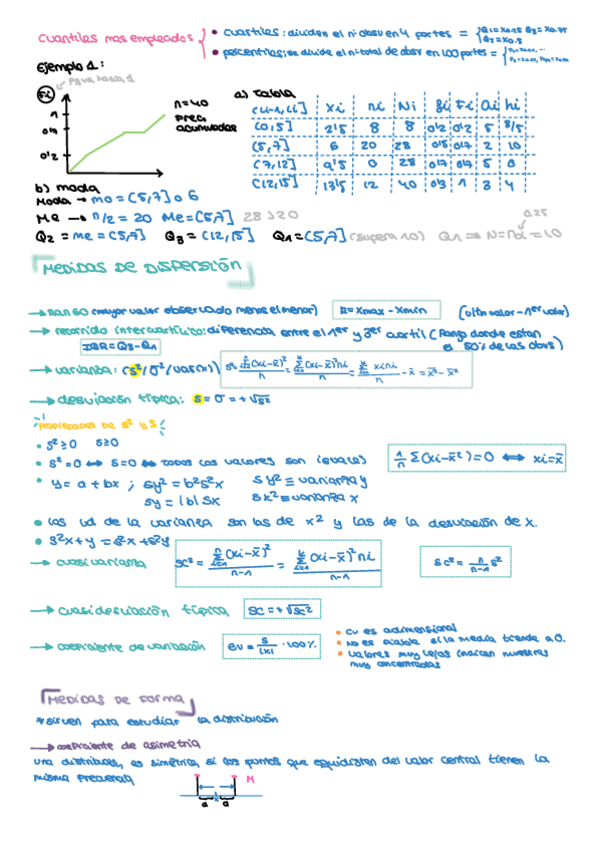 Cuantiles mas empleados
• cuartiles: dividen el nº obsv en 4 partes = Q1 = X0.25 Q3 = X0.75
Q2 = X0.5
• percentiles: se divide el nº total de obsv en 100 partes =
Ejemplo 1:
Fi
n=40
Frec.
acumuladas
1
0'7
0'2
a) tabla
(Li-1, Li] xi ni Ni fi Fi ai hi
(0,5] 2'5 8 8 0'2 0'2 5 8/5
(5,7] 6 20 28 0'5 0'7 2 10
(7,12] 9'5 0 28 0'7 5 0
(12,15] 13'5 12 40 0'3 1 3 4
b) moda
Moda → mo = (5,7] o 6
Me → n/2 = 20 Me = (5,7] 28 > 20
Q2 = me = (5,7] Q3 = (12,15] Q1 = (5,7] (supera 10) Q1 => N = nα = 10
0.25
MEDIDAS DE DISPERSIÓN
→ Rango (mayor valor observado menos el menor) R = Xmax - Xmin (ultm valor - 1er valor)
→ recorrido intercuartílico: diferencia entre el 1er y 3er cuartil (Rango donde estan
IQR = Q3 - Q1 el 50% de las obvs)
→ varianza: (s²/σ²/var(x))
→ desviación típica: s = σ = + √s²
PROPIEDADES DE S² Y S
• s² ≥ 0 s ≥ 0
• s² = 0 ↔ s = 0 ↔ todos los valores son iguales 1/n Σ(xi - x̄²) = 0 ↔ xi = x̄
• y = a + bx ; sy² = b²s²x sy² ≡ varianza y
sy = |b| sx sx² ≡ varianza x
• las ud de la varianza son las de x² y las de la desviación de x.
• s²x+y = s²x + s²y
→ cuasivarianza sc² = Σ(xi - x̄)² / n-1 = Σ(xi - x̄)² ni / n-1 sc² = n/n-1 s²
→ cuasidesviación típica sc = + √sc²
→ coeficiente de variación cv = s/|x̄| · 100%
• cv es adimensional
• no es fiable si la media tiende a 0.
• valores muy lejos indican muestras
muy concentradas
MEDIDAS DE FORMA
* sirven para estudiar la distribución
→ coeficiente de asimetría
una distribuc, es simétrica si los puntos que equidisten del valor central tienen la
misma frecuencia
M
a a